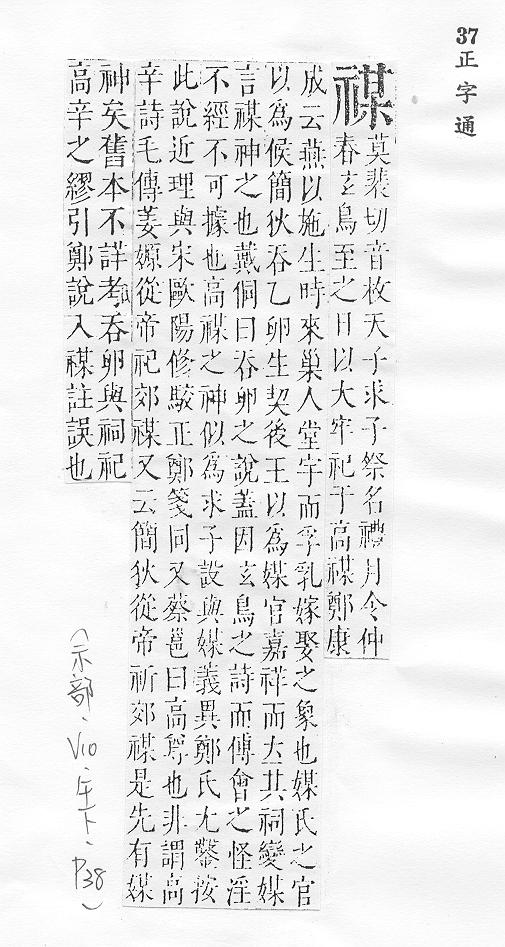 37正字通
禖
莫裴切音枚天子求子祭名禮月令仲
春玄鳥至之日以大牢祀于高禖鄭康
成云燕以施生時來巢人堂宇而孚乳嫁娶之象也媒氏之官
以爲候簡狄吞乙卵生契後王以爲媒官嘉祥而立其祠變媒
言禖神之也戴侗曰吞卵之說蓋因玄鳥之詩而傅會之怪淫
不經不可據也高禖之神似爲求子設與媒義異鄭氏尤鑿按
此說近理與宋歐陽修駁正鄭箋同又蔡邕曰高尊也非謂高
辛詩毛傳姜嫄從帝祀郊禖又云簡狄從帝祈郊禖是先有媒
神矣舊本不詳考吞卵與祠祀
高辛之繆引鄭說入禖註誤也
(示部、V10、午下、P38)